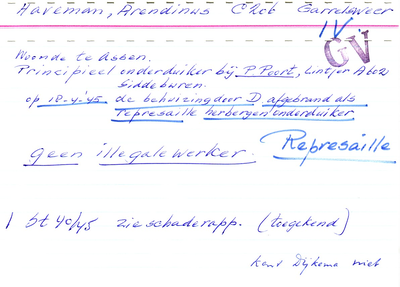 Haveman, Arendinus C206 Garrelsweer
IV
GV
Woonde te Assen.
Principieel onderduiker bij P. Poort, Luntjer A 602
Siddeburen.
op 18-4-'45 de behuizing door D. afgebrand als
represaille herbergen onderduiker.
geen illegale werker. Represaille
1 bt 40/45 zie schaderapp. (toegekend)
kent Dijkema niet